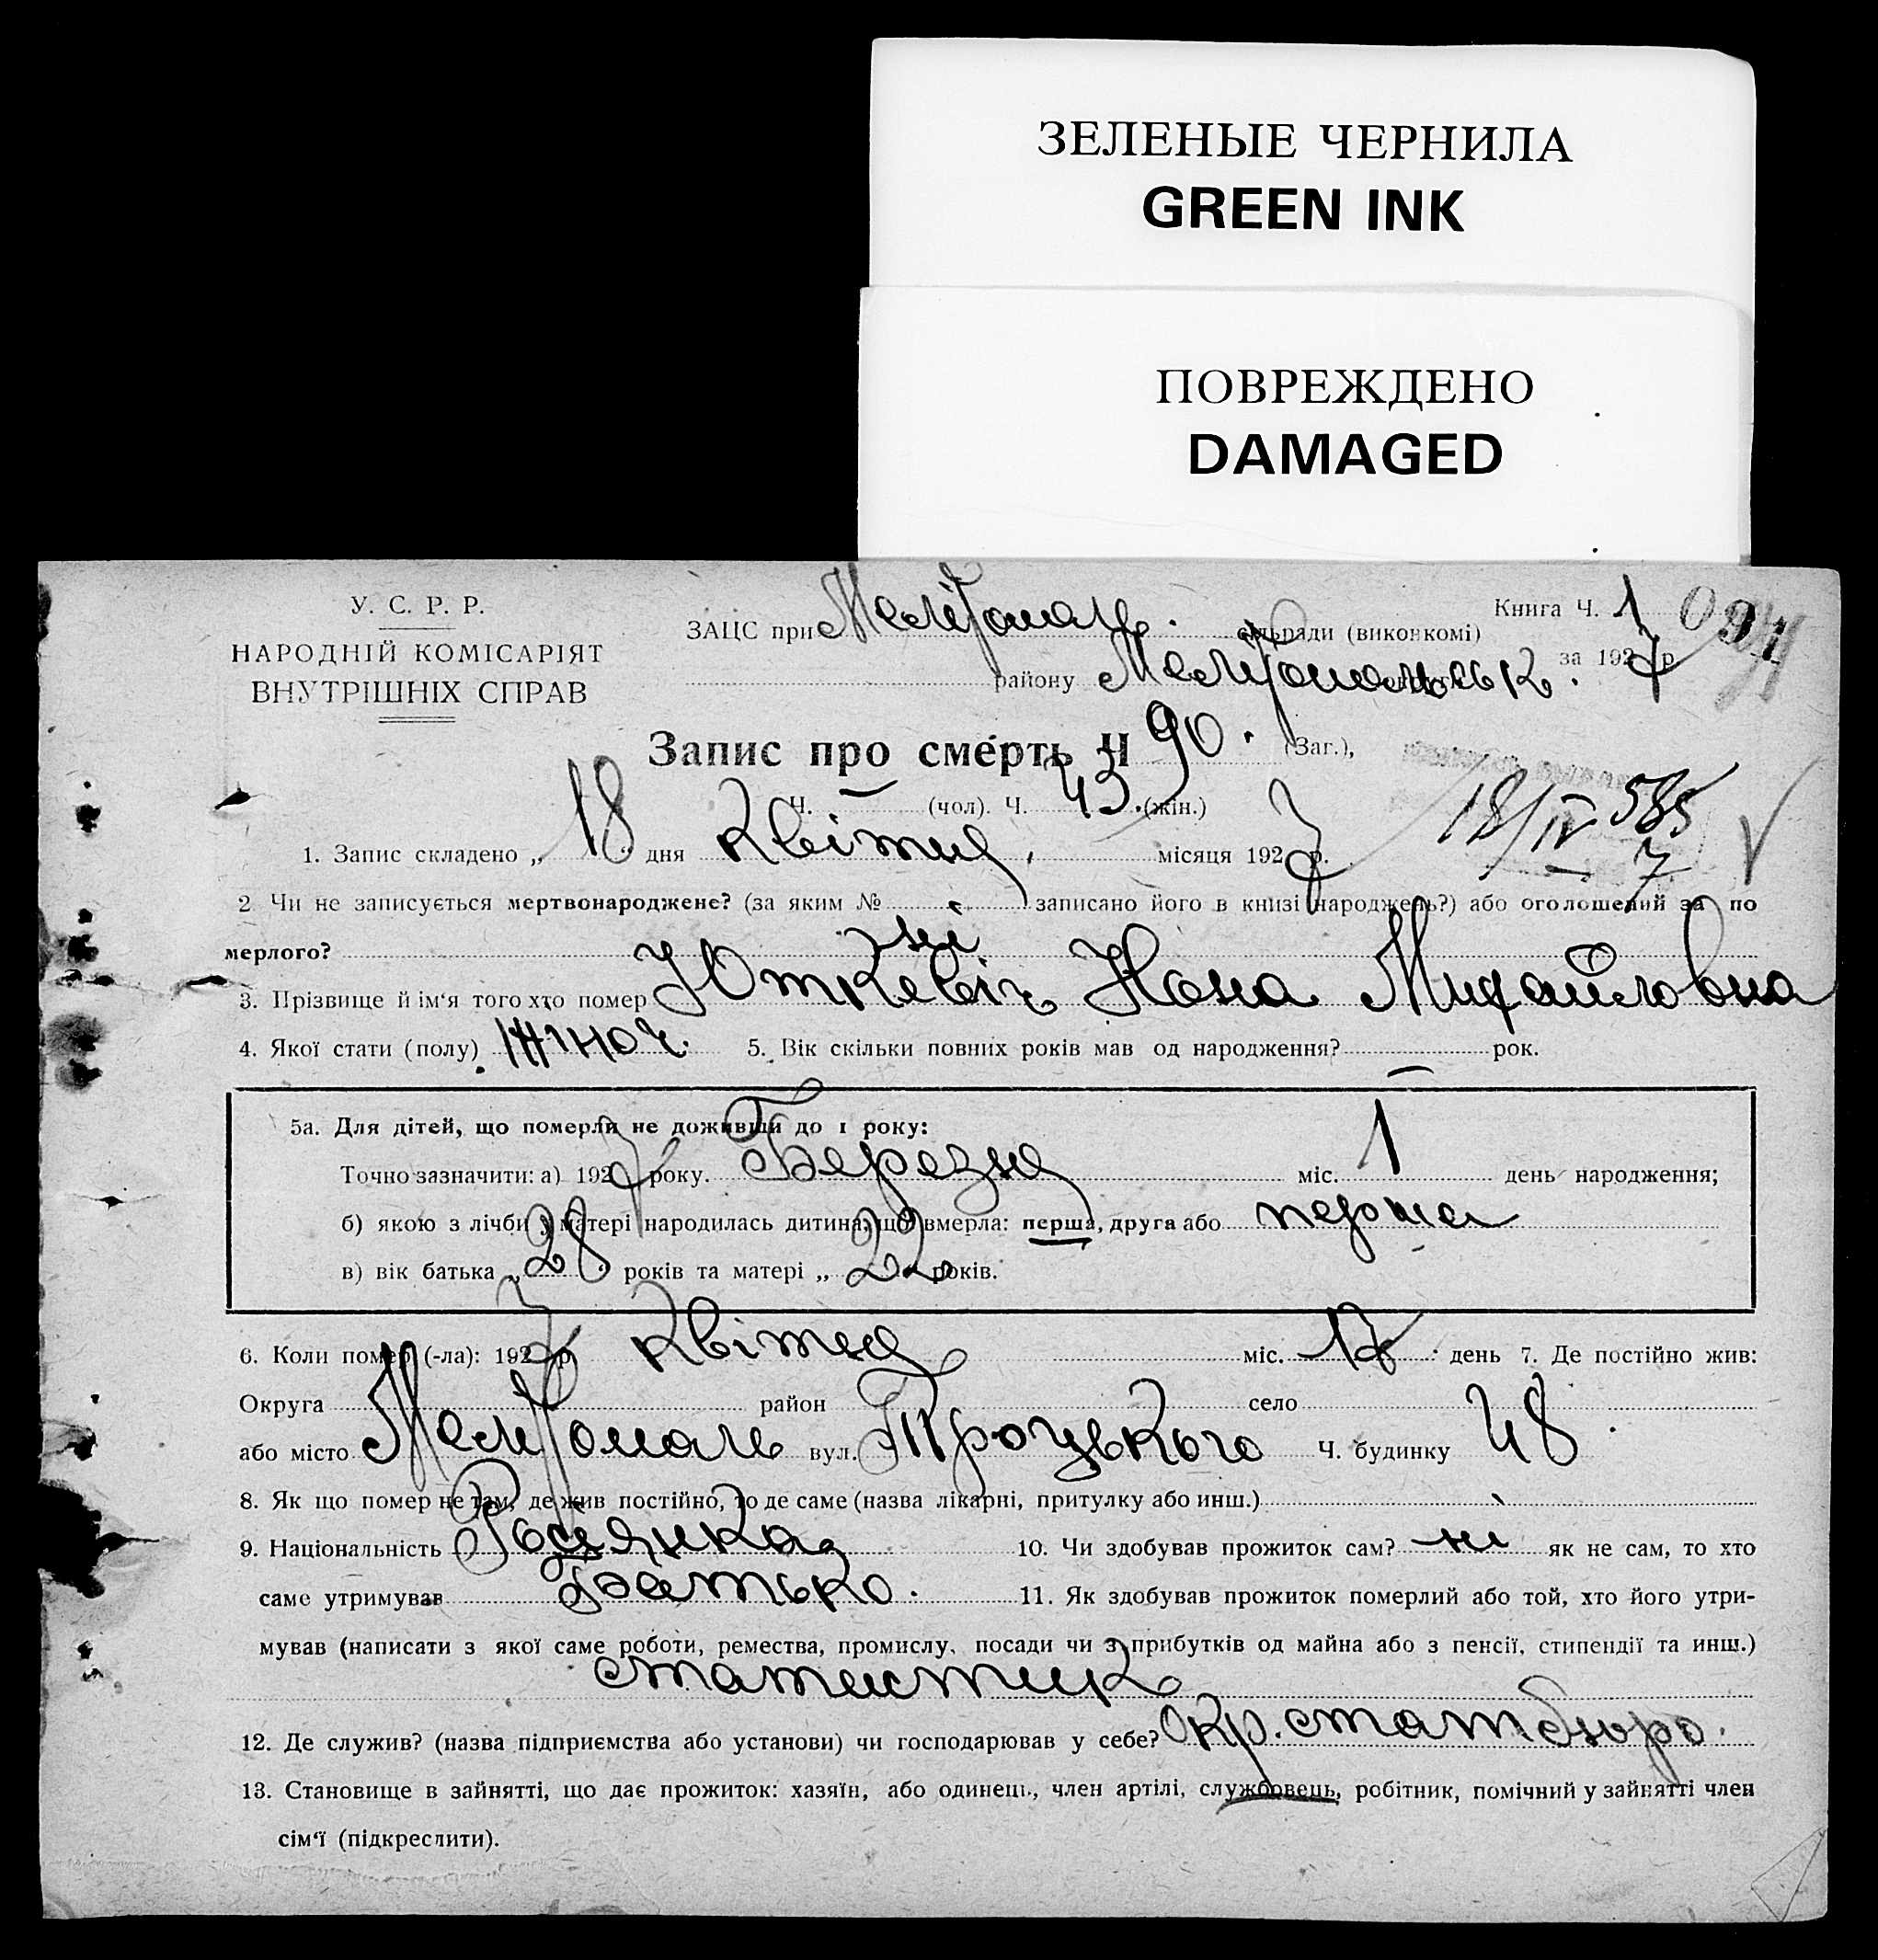 ЗЕЛЕНЫЕ ЧЕРНИЛА
GREEN INK
ПОВРЕЖДЕНО
DAMAGED
У. С. Р. Р.
НАРОДНІЙ КОМІСАРІЯТ
ВНУТРІШНІХ СПРАВ
Книга Ч. 1
ЗАЦС при Мелітополь. сільради (виконкомі)
за 1927 р.
району Мелітопольськ.
Запис про смерть Ч 90. (Заг.),
Ч. — (чол). Ч. 43. (жін.)
18/IV 585
7
1. Запис складено „ 18 дня Квітня, місяця 1927 р.
2 Чи не записується мертвонароджене? (за яким № записано його в книзі народжень?) або оголошений за по
мерлого? ні
3. Прізвище й ім'я того хто помер Юткевіч Нона Михайловна
4. Якої стати (полу) жіноч. 5. Вік скільки повних років мав од народження? — рок.
5а. Для дітей, що померли не доживши до 1 року:
Точно зазначити: а) 1927 року. Березня міс. 1 день народження;
б) якою з лічби у матері народилась дитина, що вмерла: перша, друга або перша
в) вік батька „ 28 років та матері „ 22 років.
6. Коли помер (-ла): 1927 р. Квітня міс. 17 день 7. Де постійно жив:
Округа район село
або місто Мелітополь вул. Троцького Ч. будинку 48.
8. Як що помер не там, де жив постійно, то де саме (назва лікарні, притулку або инш.)
9. Національність Росіянка 10. Чи здобував прожиток сам? ні як не сам, то хто
саме утримував Батько. 11. Як здобував прожиток померлий або той, хто його утри-
мував (написати з якої саме роботи, ремества, промислу, посади чи з прибутків од майна або з пенсії, стипендії та инш.)
статистик
12. Де служив? (назва підприємства або установи) чи господарював у себе? Окр. статбюро.
13. Становище в зайнятті, що дає прожиток: хазяїн, або одинець, член артілі, службовець, робітник, помічний у зайнятті член
сім'ї (підкреслити).